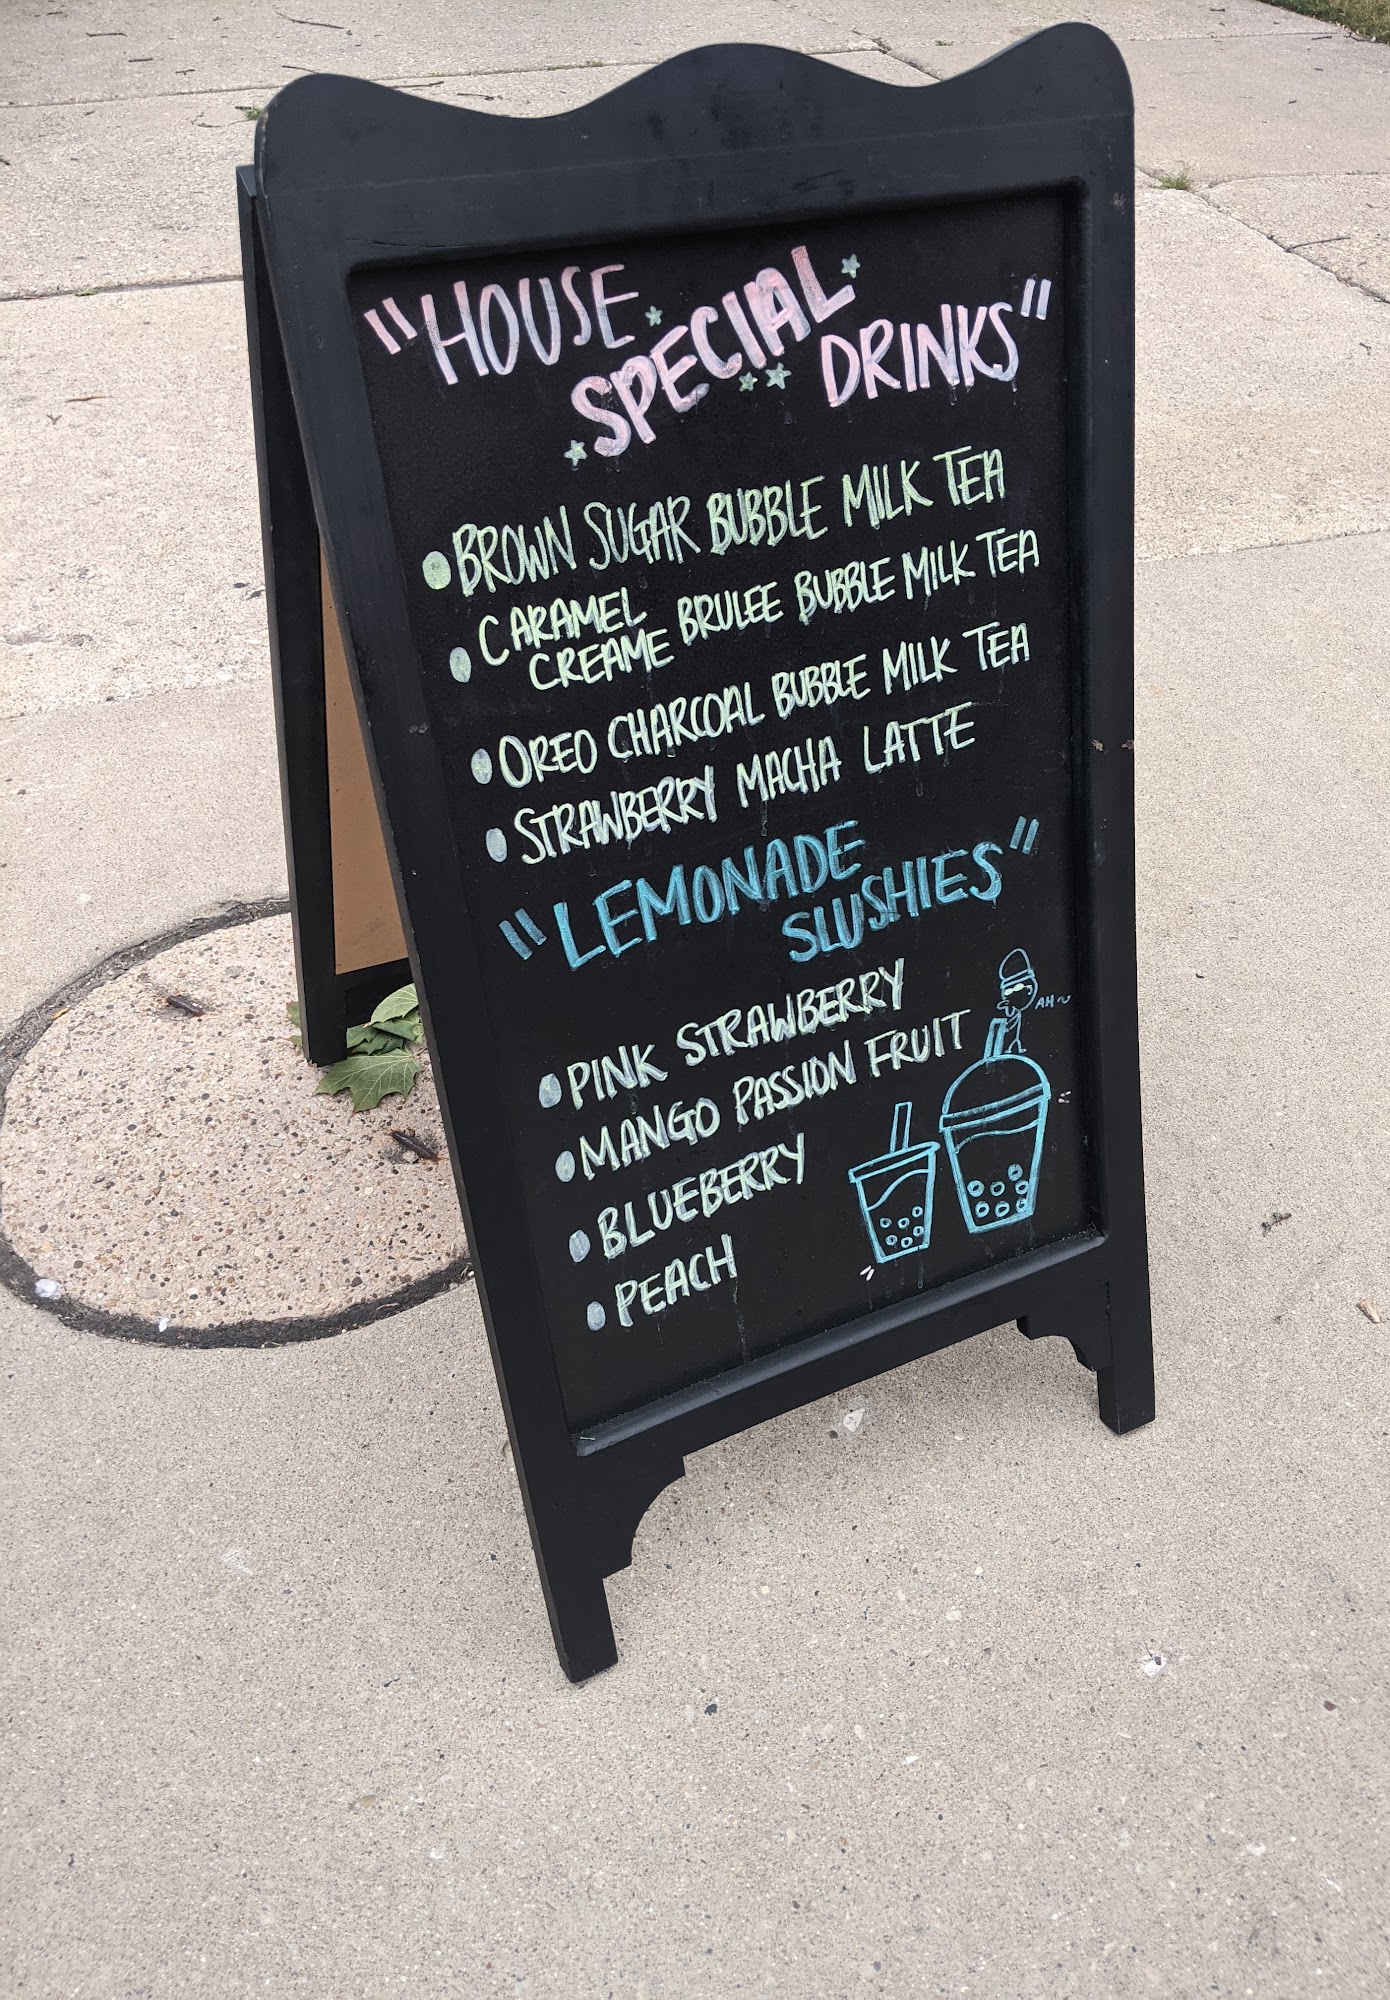 "HOUSE
SPECIAL
DRINKS"
• BROWN SUGAR BUBBLE MILK TEA
• CARAMEL
CREAME BRULEE BUBBLE MILK TEA
• OREO CHARCOAL BUBBLE MILK TEA
• STRAWBERRY MACHA LATTE
"LEMONADE
SLUSHIES"
• PINK STRAWBERRY
• MANGO PASSION FRUIT
• BLUEBERRY
• PEACH
AH~